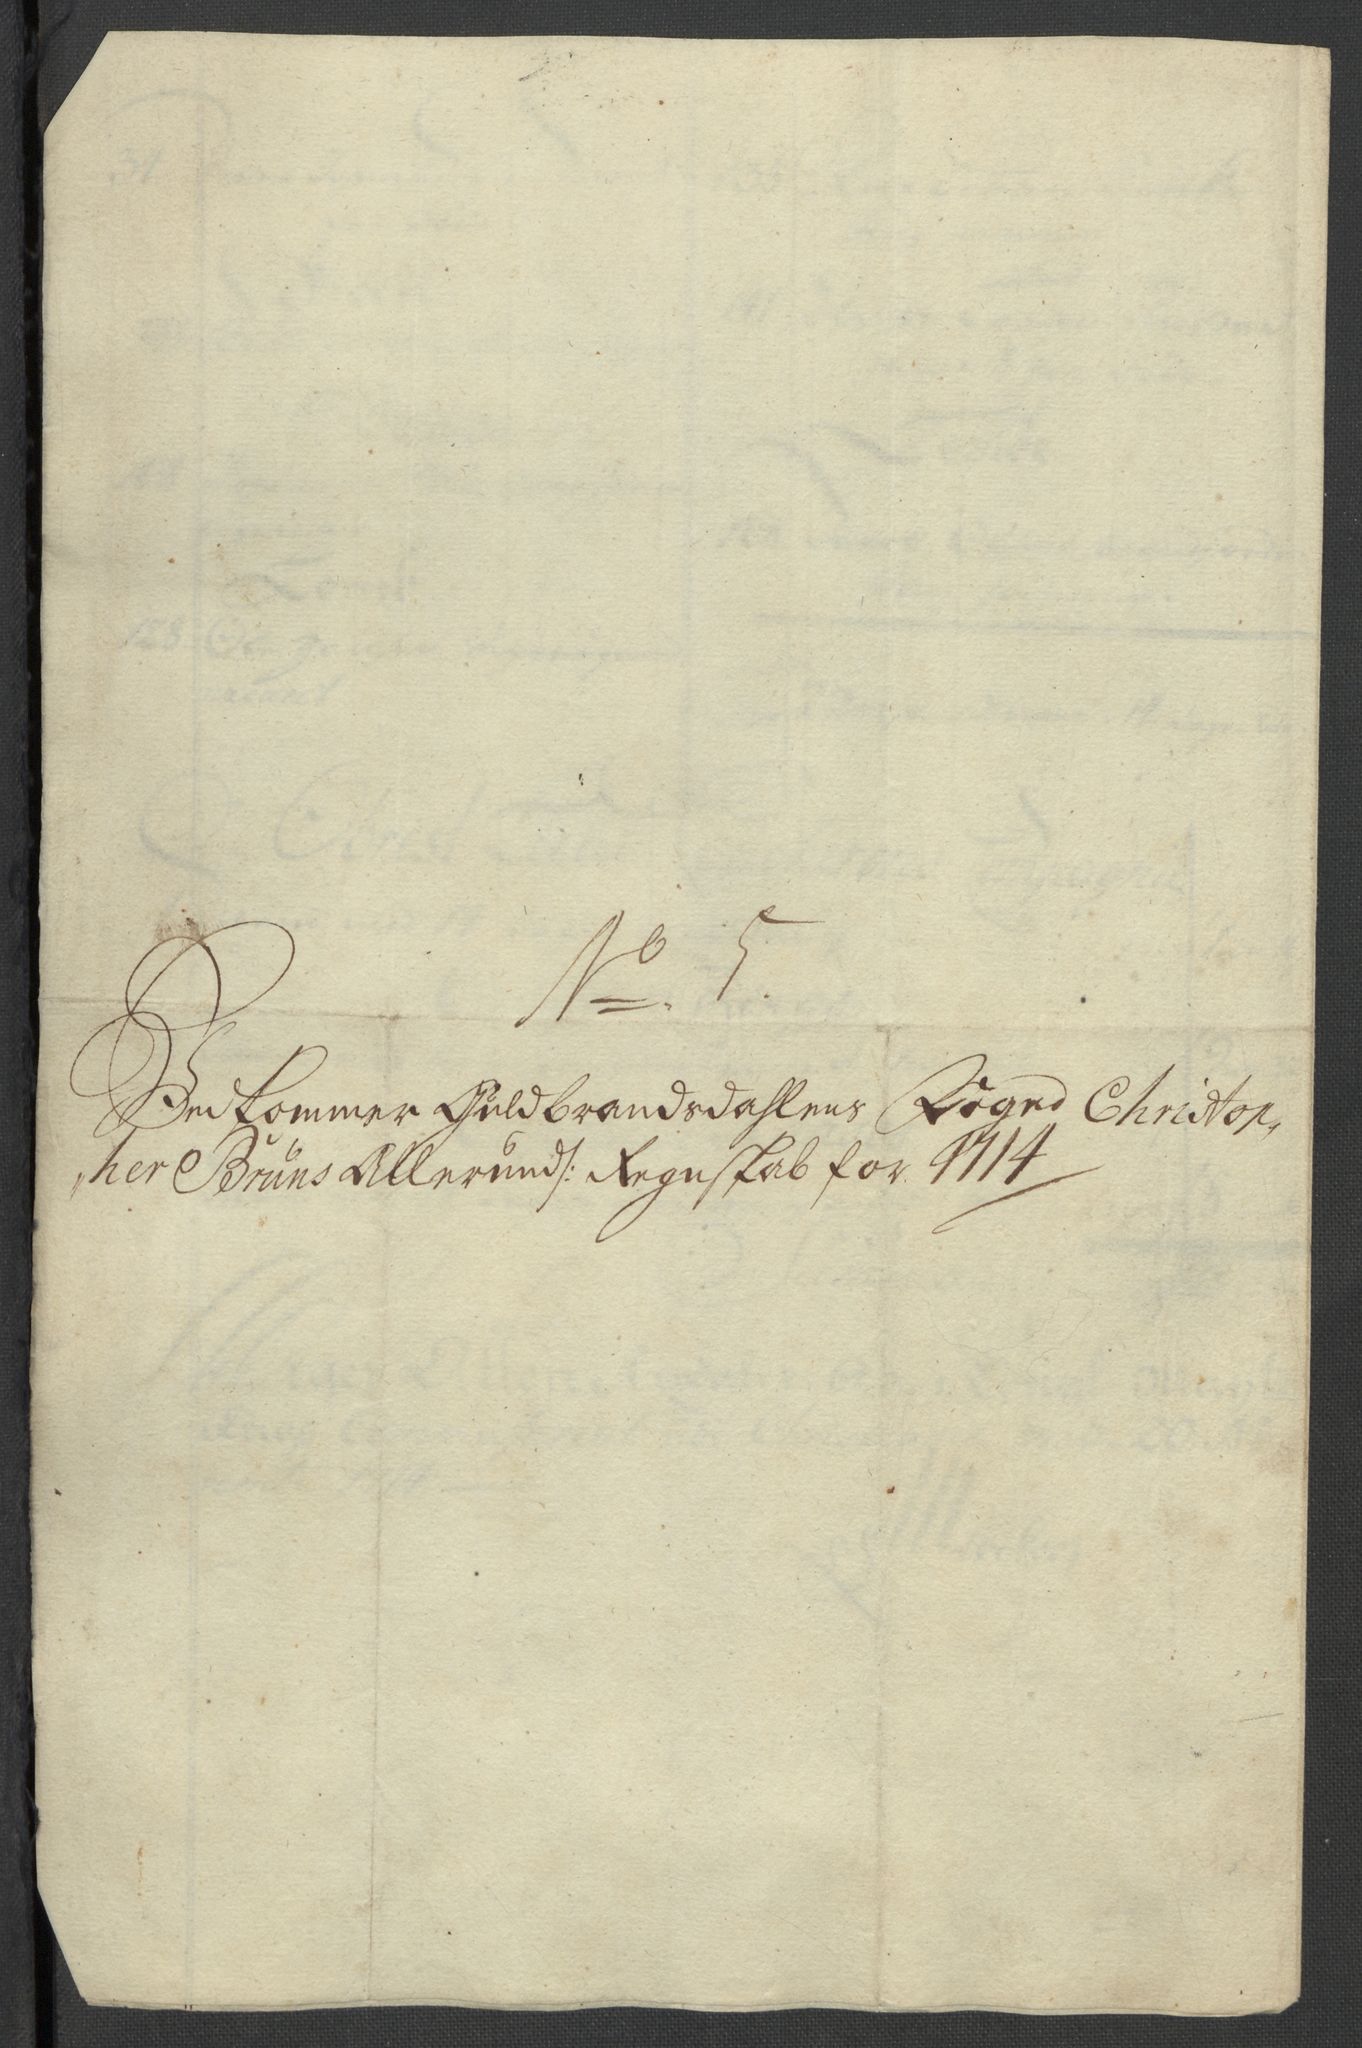 No. 5.
Vedkommer Guldbrandsdahlens Foged Christop„
„her Bruns Allerund/: Regnskab for 1714